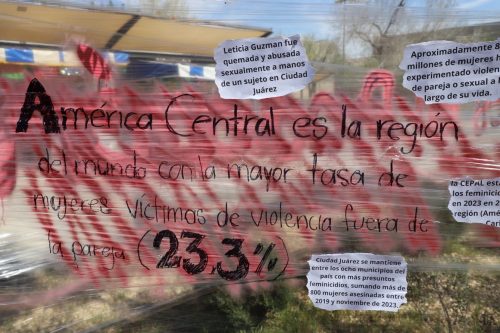 Leticia Guzman fue
quemada y abusada
sexualmente a manos
de un sujeto en Ciudad
Juárez
Aproximadamente 8
millones de mujeres h
experimentado violen
de pareja o sexual a l
largo de su vida.
América Central es la región
del mundo con la mayor tasa de
mujeres víctimas de violencia fuera de
la pareja (23.3%)
la CEPAL est
los feminici
en 2023 en 2
región (Amé
Car
Ciudad Juárez se mantiene
entre los ocho municipios del
país con más presuntos
feminicidios, sumando más de
800 mujeres asesinadas entre
2019 y noviembre de 2023